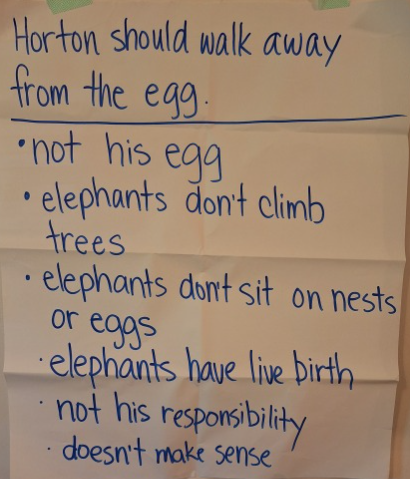 Horton should walk away
from the egg.
• not his egg
• elephants don't climb
trees
• elephants don't sit on nests
or eggs
· elephants have live birth
· not his responsibility
· doesn't make sense